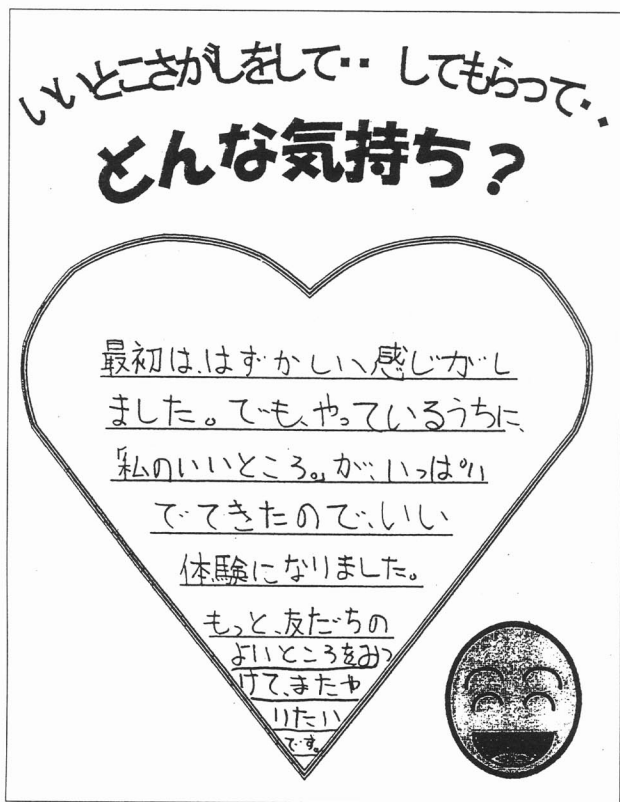 いいとこさがしをして‥ してもらって‥
どんな気持ち？
最初は、はずかしい感じがし
ました。でも、やっているうちに、
「私のいいところ。」が、いっぱい
でてきたので、いい
体験になりました。
もっと、友だちの
よいところをみつ
けて、またや
りたい
です。